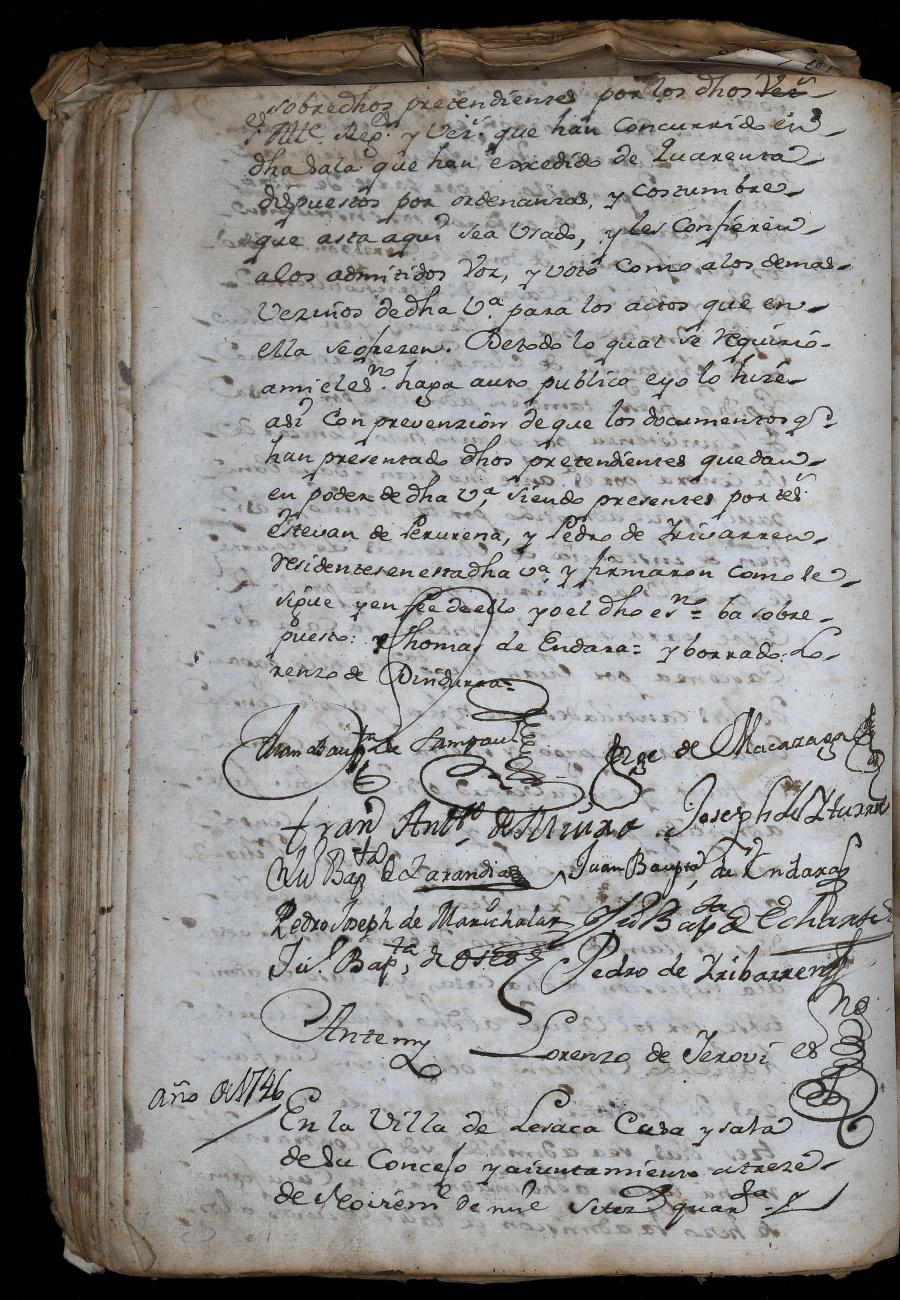 sobredhos pretendientes por los dhos
Alle. Regs. y Vezs. que han Concurrido en
dha sala que han excedido de Quarenta
dispuestos por ordenanzas, y costumbre
que asta aqui sea Usado, y les Confieren
alos admitidos Voz, y voto como alos demas
Vezinos de dha Va. para los actos que en
ella se ofrezen. De todo lo qual se requirio
ami el esno. haga auto publico e yo lo hize
asi Con prevenzion de que los documentos qe.
han presentado dhos pretendientes quedan
en poder de dha Va. siendo presentes por tes.
Estevan de Perurena, y Pedro de Irivarren
residentes en esta dha Va. y firmaron como se
sigue y en fee de ello yo el dho esno = ba sobre
puesto: Thomas de Endara = y borrado: Lo
renzo de
Juan Bapta de Sampaul
Jorge de Macazaga
Fran Antto. de
Joseph de Yturria
Ju Bapta D Larandia
Juan Baupta de Endara
Pedro Joseph de Marichalar
Ju Bapta D Echarte
Ju. Bapta. de
Pedro de Iribarren
Ante my
Lorenzo de Jerovi esno
año D 1746
En la Villa de Lesaca Casa y sala
de su Concejo y aiuntamiento a treze
de NoviemE de mil Setezs quarta y